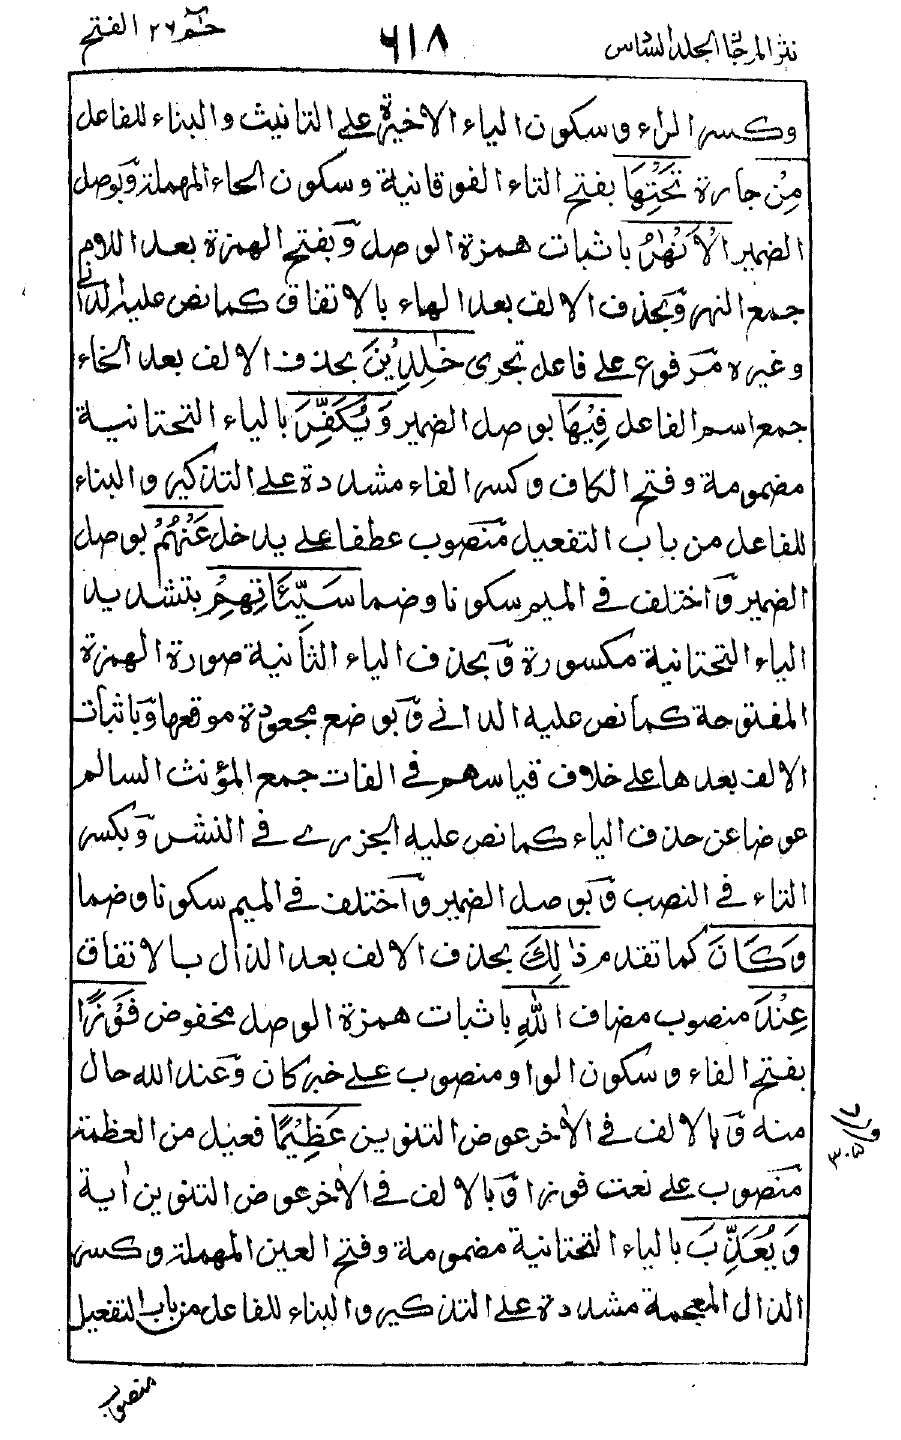 نثر المرجان الجلد السادس ٦١٨ حٰم ٢٦ الفتح
وكسر الراء وسكون الياء الاخيرة على التانيث والبناء للفاعل
مِنْ جارة تَحْتِهَا بفتح التاء الفوقانية وسكون الحاء المهملة وَبوصل
الضمير الْاَنْهٰرُ باثبات همزة الوصل وَبفتح الهمزة بعد اللام
جمع النهر وَبحذف الالف بعد الهاء بالاتفاق كما نص عليه الدانى
وغيره مَرفوع على فاعل تجرى خٰلِدِيْنَ بحذف الالف بعد الخاء
جمع اسم الفاعل فِيْهَا بوصل الضمير وَيُكَفِّرَ بالياء التحتانية
مضمومة وفتح الكاف وكسر الفاء مشددة على التذكير والبناء
للفاعل من باب التفعيل مَنصوب عطفا على يدخل عَنْهُمْ بوصل
الضمير وَاختلف فى الميم سكونا وضما سَيِّئَاتِهِمْ بتشديد
الياء التحتانية مكسورة وَبحذف الياء الثانية صورة الهمزة
المفتوحة كما نص عليه الدانى وَبوضع مجعودة موقعها وَباثبات
الالف بعدها على خلاف قياسهم فى الفات جمع المؤنث السالم
عوضا عن حذف الياء كما نص عليه الجزرى فى النشر وَبكسر
التاء فى النصب وَبوصل الضمير وَاختلف فى الميم سكونا وضما
وَكَانَ كما تقدم ذٰلِكَ بحذف الالف بعد الذال بالاتفاق
عِنْدَ منصوب مضاف اللّٰهِ باثبات همزة الوصل مخفوض فَوْزًا
بفتح الفاء وسكون الواو منصوب على خبر كان وَعند الله حال
منه وَبالالف فى الاٰخر عوض التنوين عَظِيْمًا فعيل من العظمة
مَنصوب على نعت فوزا وَبالالف فى الاٰخر عوض التنوين اٰية
وَيُعَذِّبَ بالياء التحتانية مضمومة وفتح العين المهملة وكسر
الذال المعجمة مشددة على التذكير والبناء للفاعل من باب التفعيل
منصوب